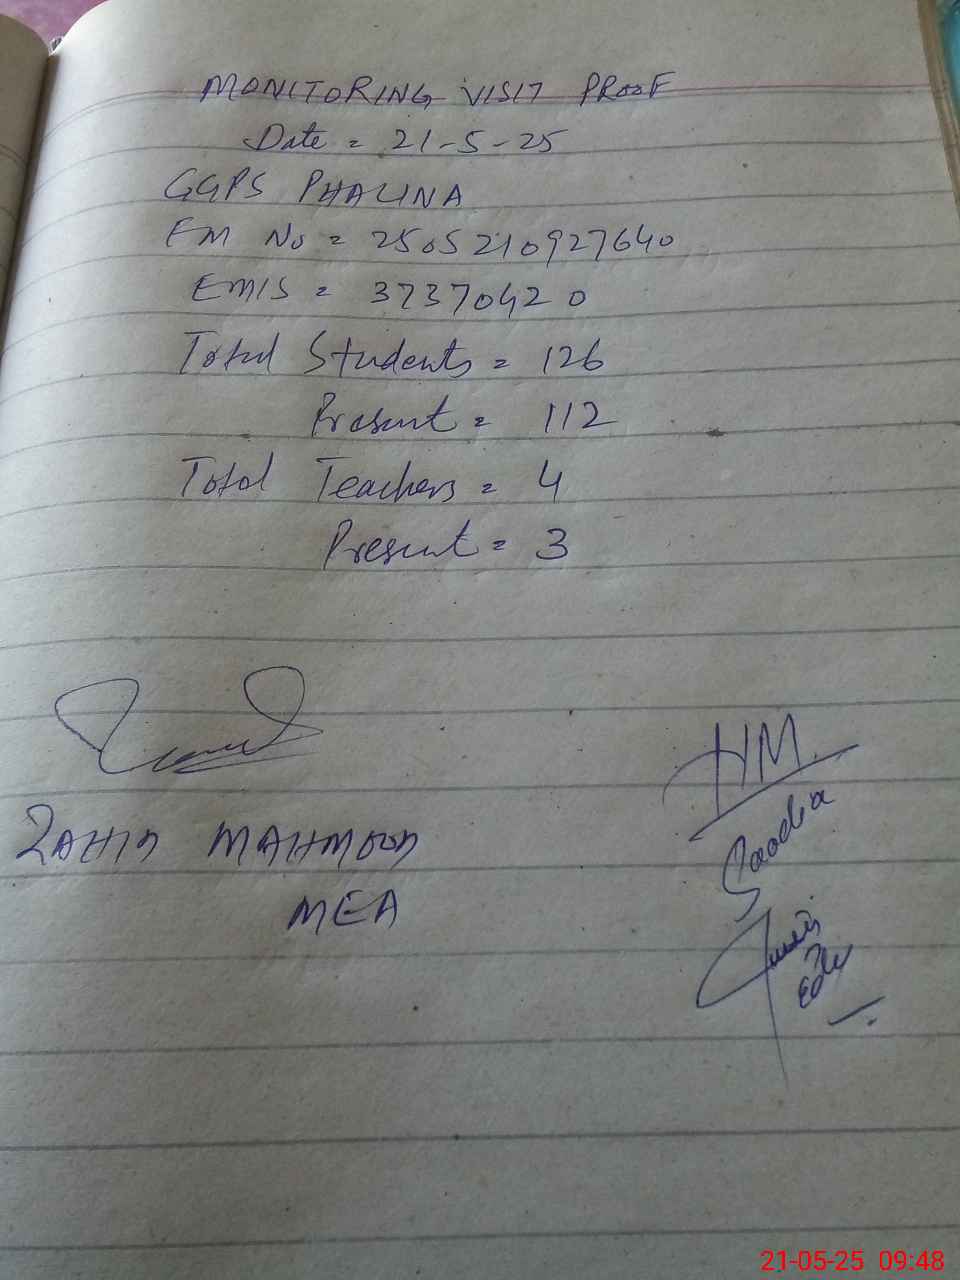 MONITORING VISIT PROOF
Date = 21-5-25
GGPS PHALINA
EM No = 2505210927640
EMIS = 37370420
Total Students = 126
Present = 112
Total Teachers = 4
Present = 3
ZAHID MAHMOOD
MEA
HM.
Saadia
21-05-25 09:48